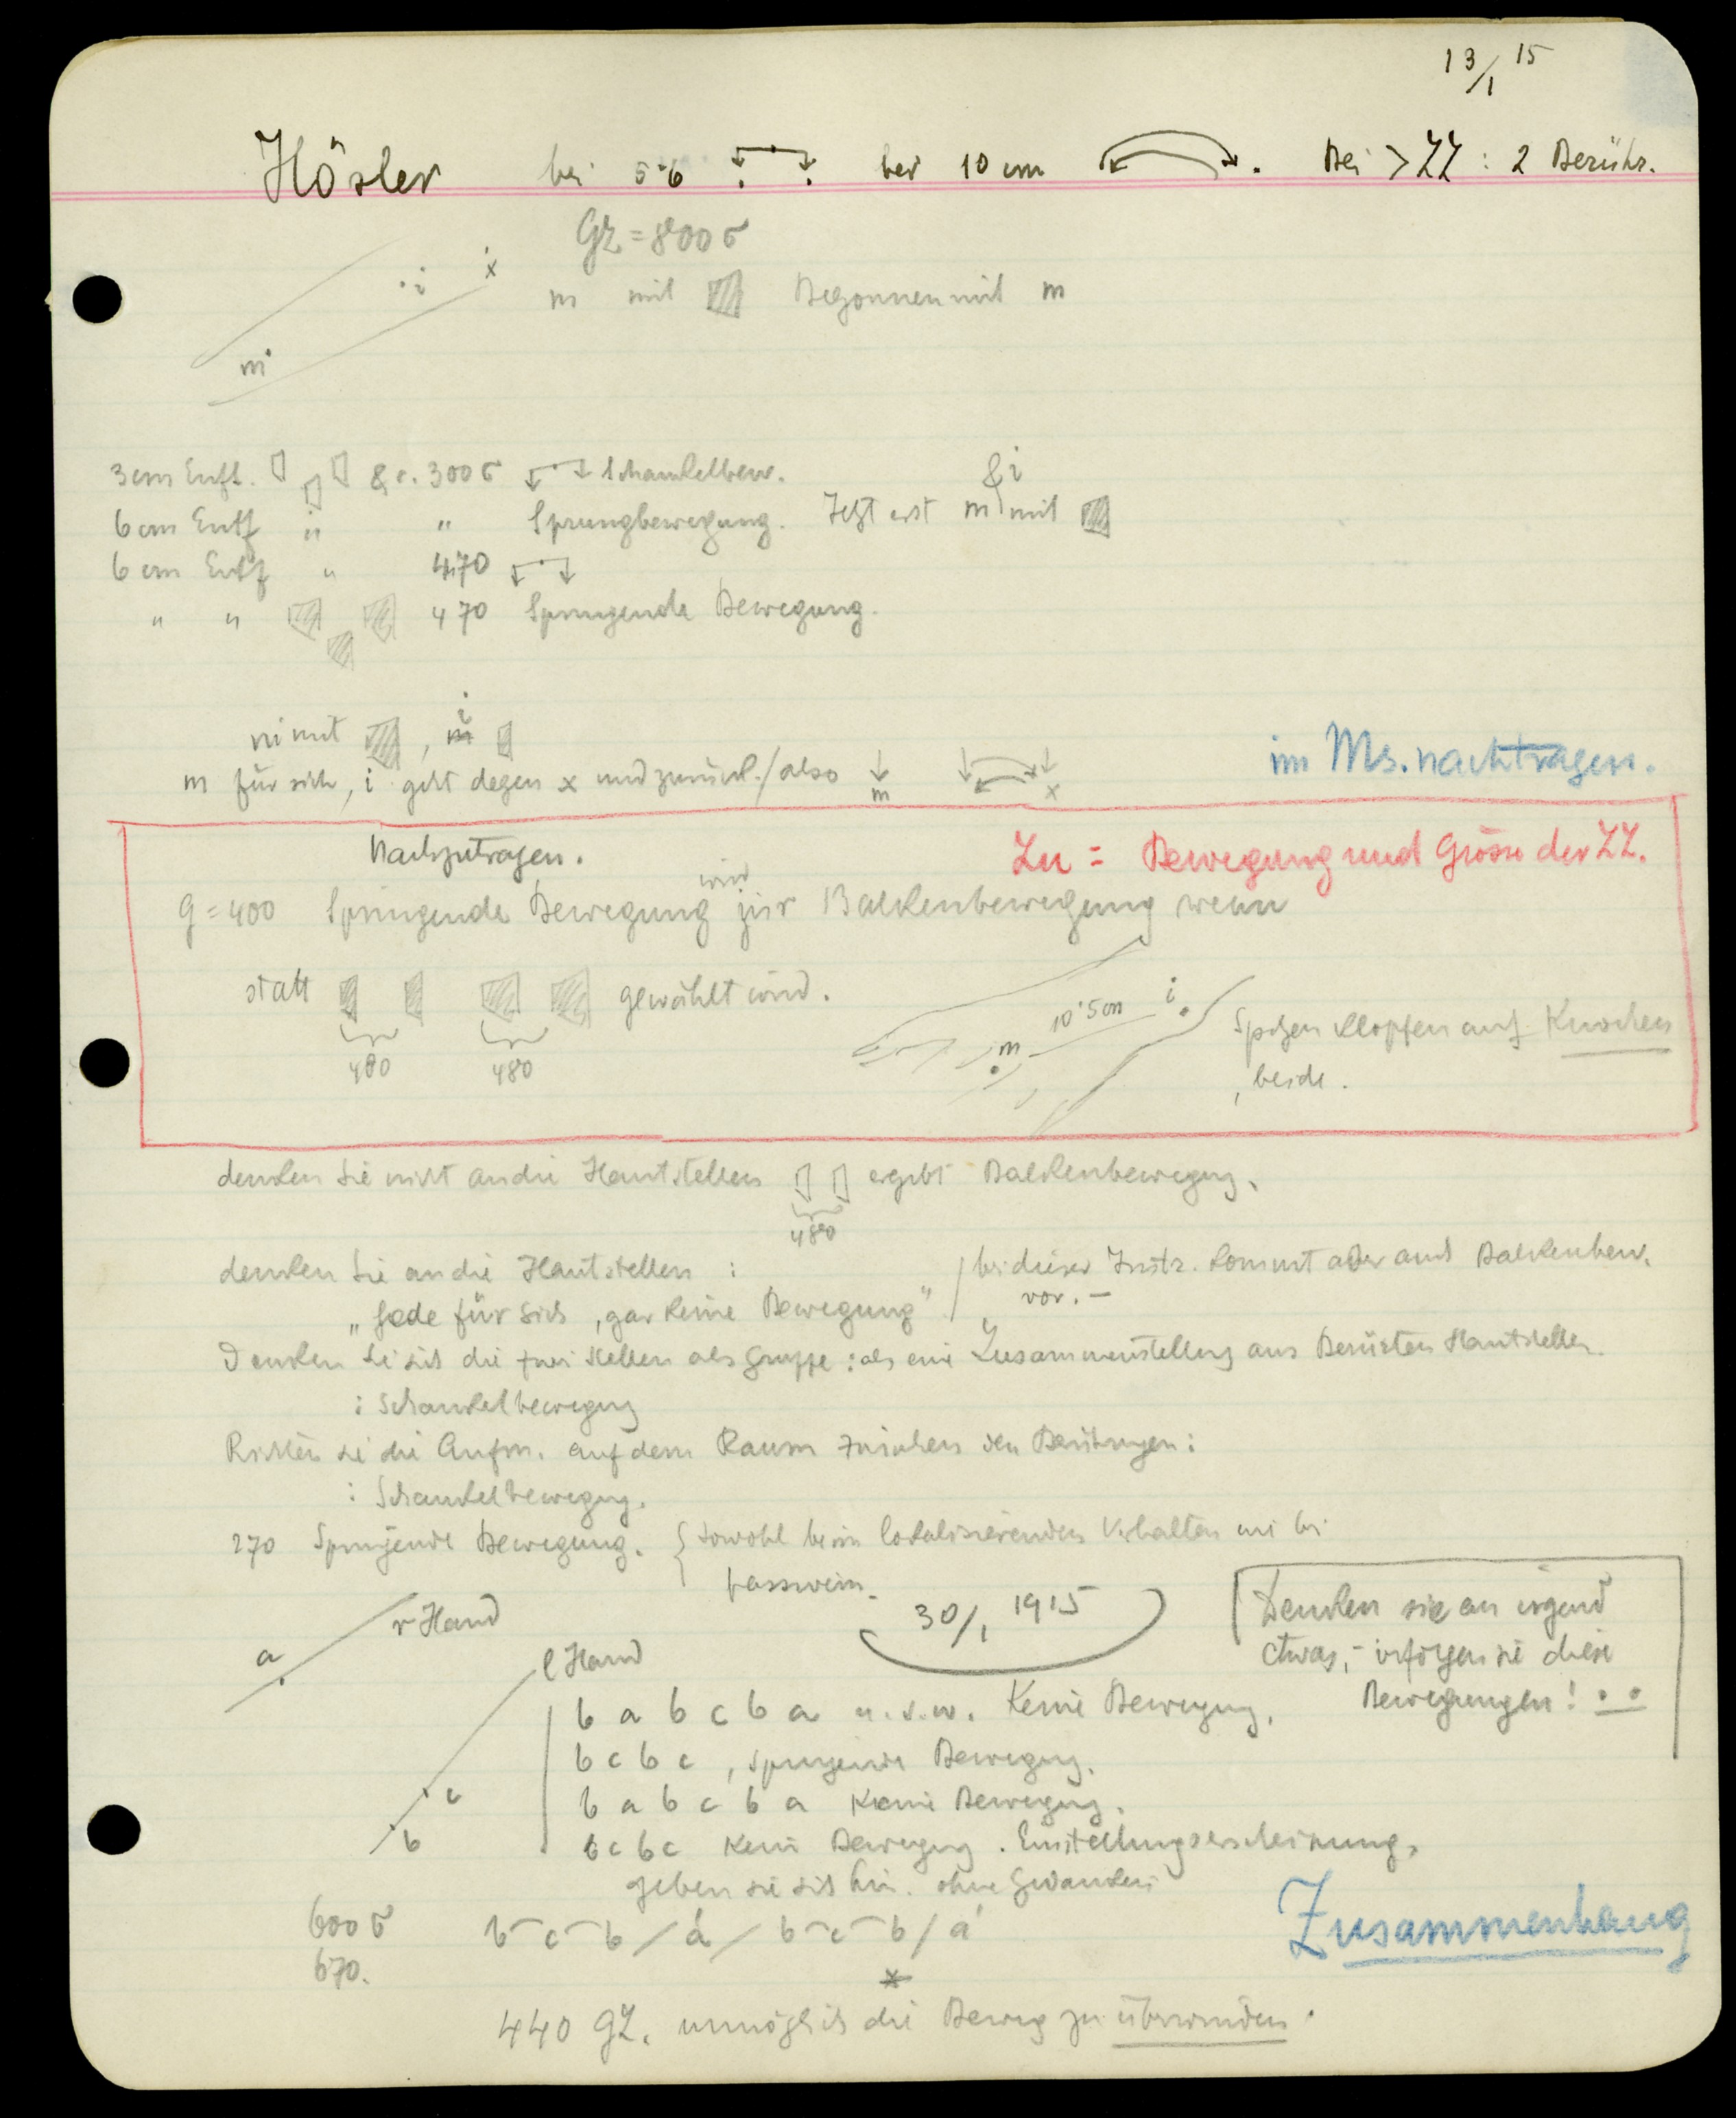 13/1 15
Hösler bei 5·6 bei 10 cm . Bei > ZZ : 2 Berühr.
GZ = 800 σ
i x
m mit Begonnen mit m
m
3 cm Entf. & c. 300 σ Schaukelbew.
& i
6 cm Entf " " Sprungbewegung. Jetzt erst m mit
6 cm Entf " 470
" " 470 Springende Bewegung.
i
m mit , m
im Ms. nachtragen.
m für sich, i geht gegen x und zurück. / also m x
Nachzutragen.
Zu = Bewegung und Grösse der ZZ.
wird
g = 400 Springende Bewegung zur Balkenbewegung wenn
statt gewählt wird.
480 480
10·5 cm i
m
Spitzen klopfen auf Knochen
beide.
denken Sie nicht an die Hautstellen ergibt Balkenbewegung.
480
denken Sie an die Hautstellen :
„Jede für sich, gar keine Bewegung" / bei dieser Instr. kommt aber auch Balkenbew.
vor. –
Denken Sie sich die zwei Stellen als Gruppe : als eine Zusammenstellung aus Berührten Hautstellen
: Schaukelbewegung
Richten Sie die Aufm. auf den Raum zwischen den Berührungen :
: Schaukelbewegung.
270 Springende Bewegung. { sowohl beim lokalisierenden Verhalten wie bei
passivem.
30/1 1915
Denken sie an irgend
etwas, – verfolgen sie diese
Bewegungen !
r Hand
a
l Hand
c
b
b a b c b a u. s. w. Keine Bewegung.
b c b c , springende Bewegung.
b a b c b a Keine Bewegung.
b c b c Keine Bewegung . Einstellungserscheinung.
geben sie sich hin. ohne Gedanken
600 σ b c b / á / b c b / á
670.
Zusammenhang
*
440 GZ. unmöglich die Beweg zu überwinden.